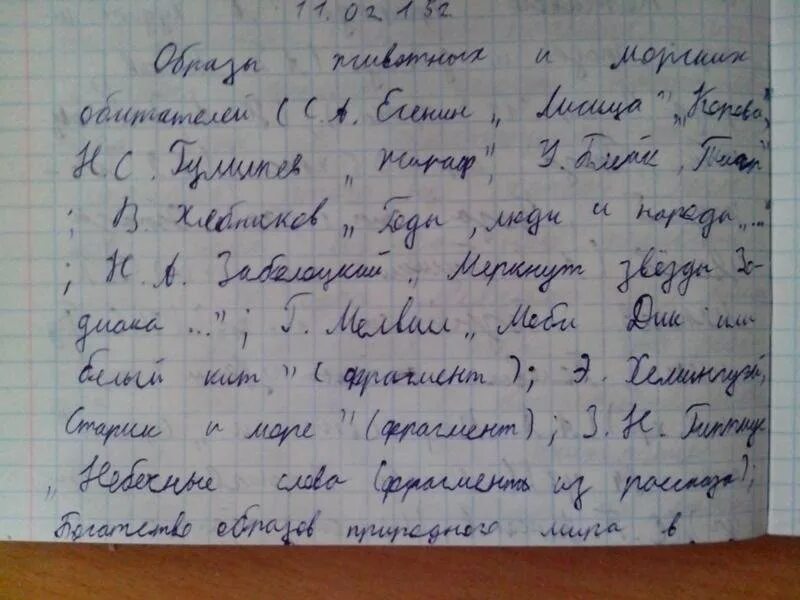 11.02.13г
Образы животных и морских
обитателей (С.А. Есенин „Лисица" „Корова"
Н.С. Гумилев „Жираф", У. Блейк „Тигр"
; В. Хлебников „Годы, люди и народы..."
; Н.А. Заболоцкий „Меркнут звёзды Зо-
диака ..."; Г. Мелвил „Моби Дик или
белый кит" (фрагмент); Э. Хемингуэй,
Старик и море" (фрагмент); З.Н. Гиппиус
„Небесные слова (фрагменты из рассказа);
Богатство образов природного мира в